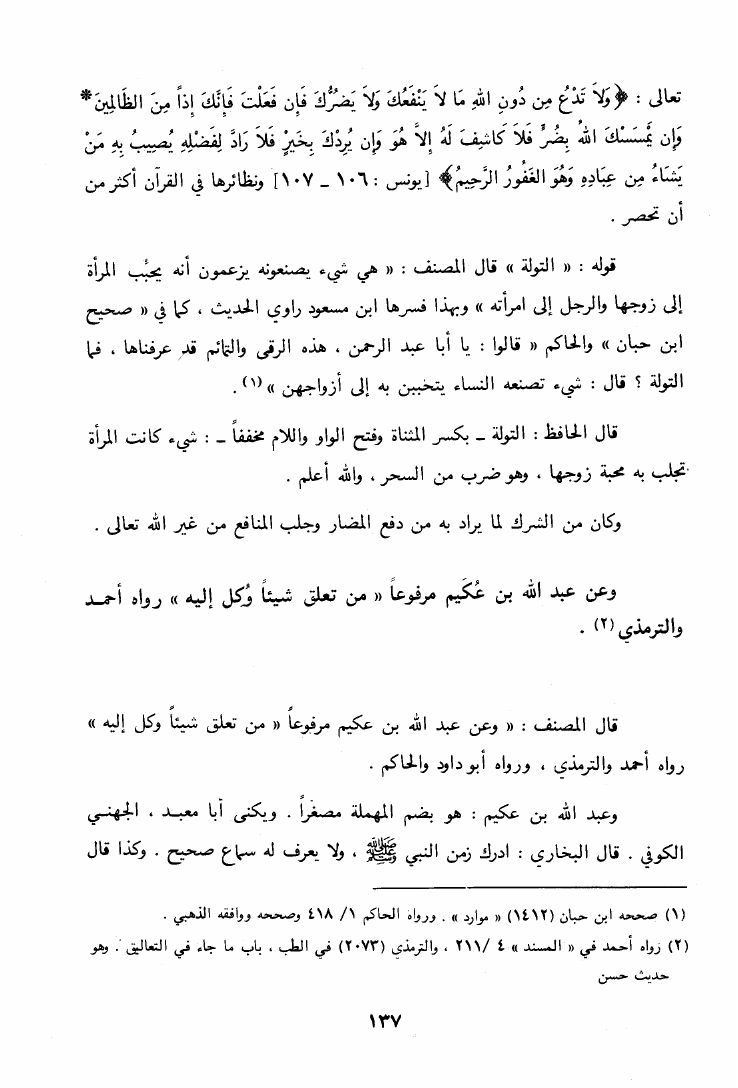 تعالى : ﴿وَلاَ تَدْعُ مِن دُونِ اللهِ مَا لاَ يَنْفَعُكَ وَلاَ يَضُرُّكَ فَإِن فَعَلْتَ فَإِنَّكَ إِذاً مِنَ الظَالِمِينَ*
وَإِن يَمْسَسْكَ اللهُ بِضُرٍّ فَلاَ كَاشِفَ لَهُ إِلاَّ هُوَ وَإِن يُرِدْكَ بِخَيْرٍ فَلاَ رَادَّ لِفَضْلِهِ يُصِيبُ بِهِ مَنْ
يَشَاءُ مِن عِبَادِهِ وَهُوَ الغَفُورُ الرَّحِيمُ﴾ [يونس : ١٠٦ ـ ١٠٧] ونظائرها في القرآن أكثر من
أن تحصر .
قوله : « التولة » قال المصنف : « هي شيء يصنعونه يزعمون أنه يحبِّب المرأة
إلى زوجها والرجل إلى امرأته » وبهذا فسرها ابن مسعود راوي الحديث ، كما في « صحيح
ابن حبان » والحاكم « قالوا : يا أبا عبد الرحمن ، هذه الرقى والتمائم قد عرفناها ، فما
التولة ؟ قال : شيء تصنعه النساء يتحببن به إلى أزواجهن » (١) .
قال الحافظ : التولة ـ بكسر المثناة وفتح الواو واللام مخففاً ـ : شيء كانت المرأة
تجلب به محبة زوجها ، وهو ضرب من السحر ، والله أعلم .
وكان من الشرك لما يراد به من دفع المضار وجلب المنافع من غير الله تعالى .
وعن عبد الله بن عُكَيم مرفوعاً « من تعلق شيئاً وُكل إليه » رواه أحمد
والترمذي (٢) .
قال المصنف : « وعن عبد الله بن عكيم مرفوعاً « من تعلق شيئاً وكل إليه »
رواه أحمد والترمذي ، ورواه أبو داود والحاكم .
وعبد الله بن عكيم : هو بضم المهملة مصغراً . ويكنى أبا معبد ، الجهني
الكوفي . قال البخاري : ادرك زمن النبي ﷺ ، ولا يعرف له سماع صحيح . وكذا قال
(١) صححه ابن حبان (١٤١٢) « موارد » . ورواه الحاكم ١/ ٤١٨ وصححه ووافقه الذهبي .
(٢) رواه أحمد في « المسند » ٤ /٢١١ ، والترمذي (٢٠٧٣) في الطب ، باب ما جاء في التعاليق . وهو
حديث حسن
١٣٧